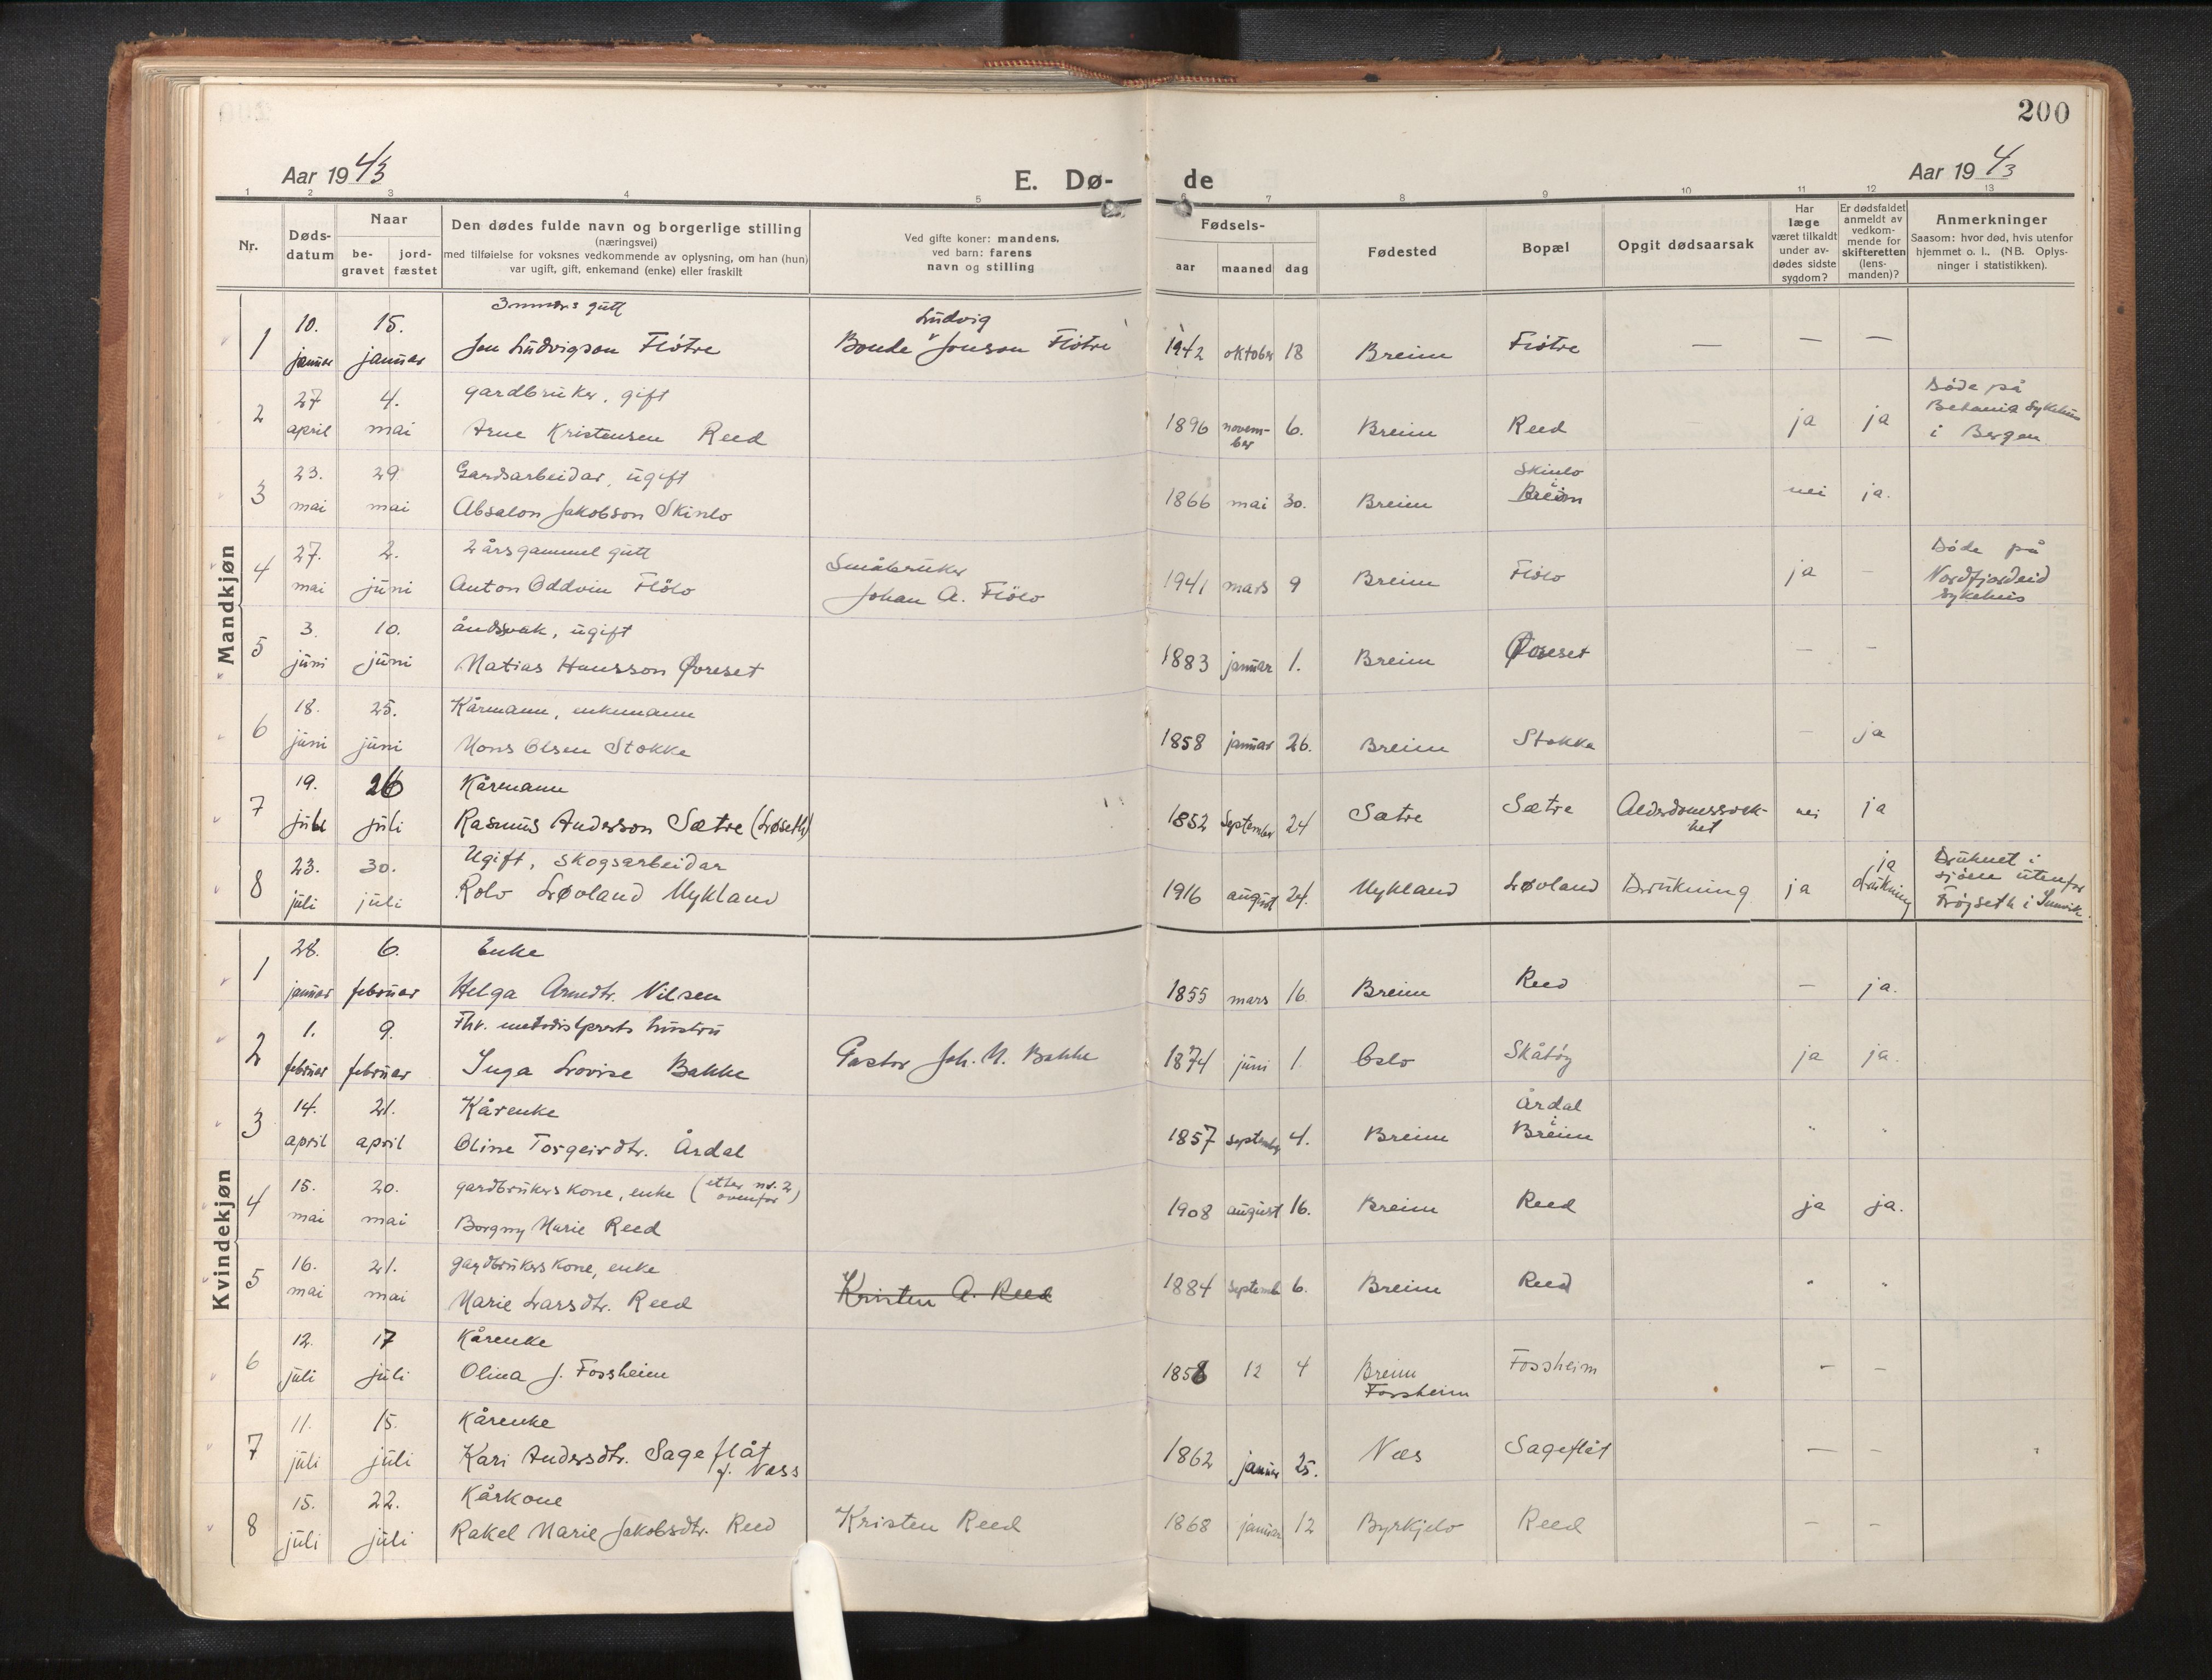 200
Aar 1943
E. Dø-
de
Aar 1943
1 2 3 4 5 6 7 8 9 10 11 12 13
Nr.
Døds-
datum
Naar
be-
gravet
jord-
fæstet
Den dødes fulde navn og borgerlige stilling
(næringsvei)
med tilføielse for voksnes vedkommende av oplysning, om han (hun)
var ugift, gift, enkemand (enke) eller fraskilt
Ved gifte koner: mandens,
ved barn: farens
navn og stilling
Fødsels-
aar maaned dag
Fødested
Bopæl
Opgit dødsaarsak
Har
læge
været tilkaldt
under av-
dødes sidste
sygdom?
Er dødsfaldet
anmeldt av
vedkom-
mende for
skifteretten
(lens-
manden)?
Anmerkninger
Saasom: hvor død, hvis utenfor
hjemmet o. l., (NB. Oplys-
ninger i statistikken).
Mandkjøn
10. 15. 3 mnd.s gutt Ludvig
1 januar januar Jon Ludvigson Flötre Bonde Jonson Flötre 1942 oktober 18 Breim Flötre — — —
27 4. gardbruker, gift Döde på
2 april mai Arne Kristensen Reed 1896 novem-ber 6. Breim Reed ja ja Betania Sykehus
i Bergen
23. 29 Gardsarbeidar, ugift Skinlo
3 mai mai Absalon Jakobson Skinlo 1866 mai 30. Breim i Breim nei ja.
27. 2. 2 årsgammel gutt Småbruker Döde på
4 mai juni Anton Oddvin Flölo Johan A. Flölo 1941 mars 9 Breim Flölo ja – Nordfjordeid
sykehus
3. 10. åndsvak, ugift
5 juni juni Matias Hansson Øvreset 1883 januar 1. Breim Øvreset – –
18. 25. Kårmann, enkemann
6 juni juni Mons Olsen Stokke 1858 januar 26. Breim Stokke – ja
19. 26 Kårmann
7 juli juli Rasmus Anderson Sætre (Løseth) 1852 September 24 Sætre Sætre Alderdomssvak-
het nei ja
23. 30. Ugift, skogsarbeidar ja Druknet i
8 juli juli Rolv Løvland Mykland 1916 august 24. Mykland Løvland Drukning ja drukning sjöen utenfor
Fröyseth i Innvik.
Kvindekjøn
28. 6. Enke
1 januar februar Helga Arnedtr. Nilsen 1855 mars 16 Breim Reed – ja.
1. 9. Fhv. metodistprests hustru
2 februar februar Inga Lovise Bakke Pastor Joh. M. Bakke 1874 juni 1. Oslo Skåtöy ja ja.
14. 21. Kårenke Årdal
3 april april Oline Torgeirdtr. Årdal 1857 september 4. Breim i Breim " "
15. 20. gardbrukers kone, enke (etter nr. 2 ovenfor)
4 mai mai Borgny Marie Reed 1908 august 16. Breim Reed ja ja.
16. 21. gardbrukers kone, enke
5 mai mai Marie Larsdtr. Reed Kristen A. Reed 1884 septemb 6. Breim Reed " "
12. 17 Kårenke
6 juli juli Olina J. Fossheim 1858 12 4 Breim Fossheim – –
Fossheim
11. 15. Kårenke
7 juli juli Kari Andersdtr. Sageflåt 1862 januar 25. Nes Sageflåt — –
f. Næss
15. 22. Kårkone
8 juli juli Rakel Marie Jakobsdtr. Reed Kristen Reed 1868 januar 12 Byrkjelo Reed – –